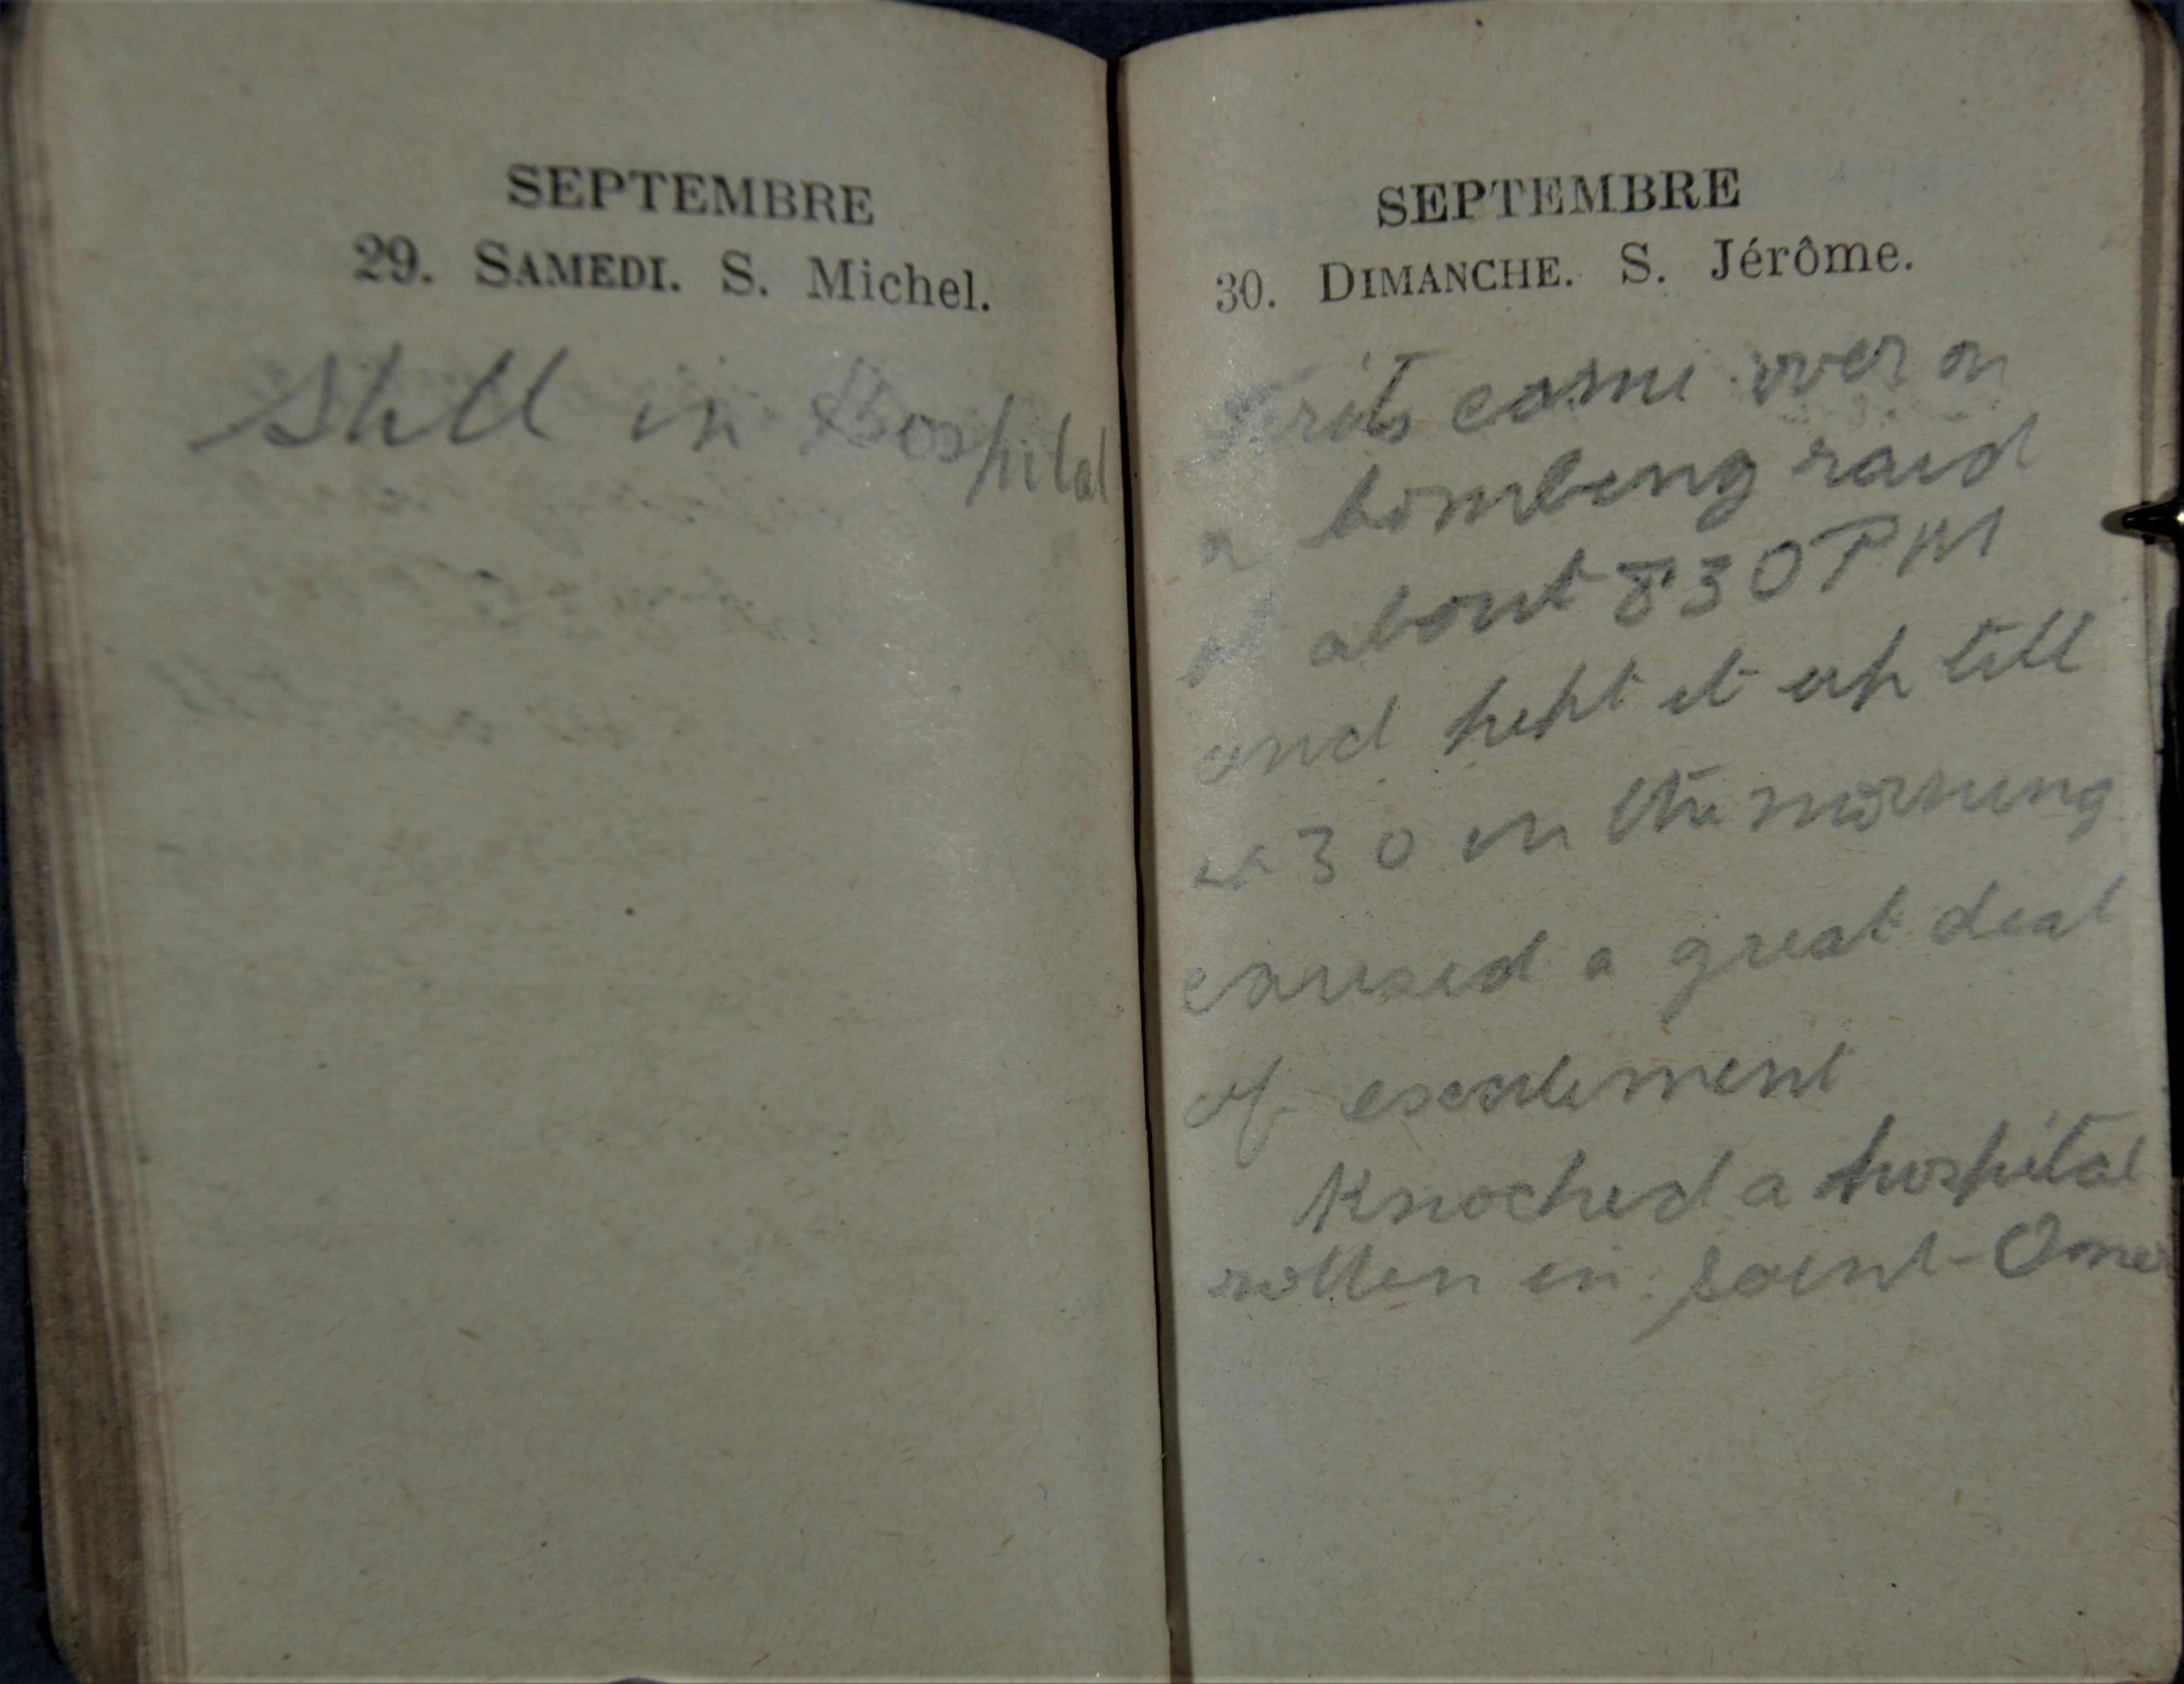 SEPTEMBRE
29. SAMEDI. S. Michel.
Still in Hospital
SEPTEMBRE
30. DIMANCHE. S. Jérôme.
Frits came over on
a bombing raid
at about 830 PM
and kept it up till
30 in the morning
caused a great deal
of
Knocked a hospital
rotten in Saint-Omer